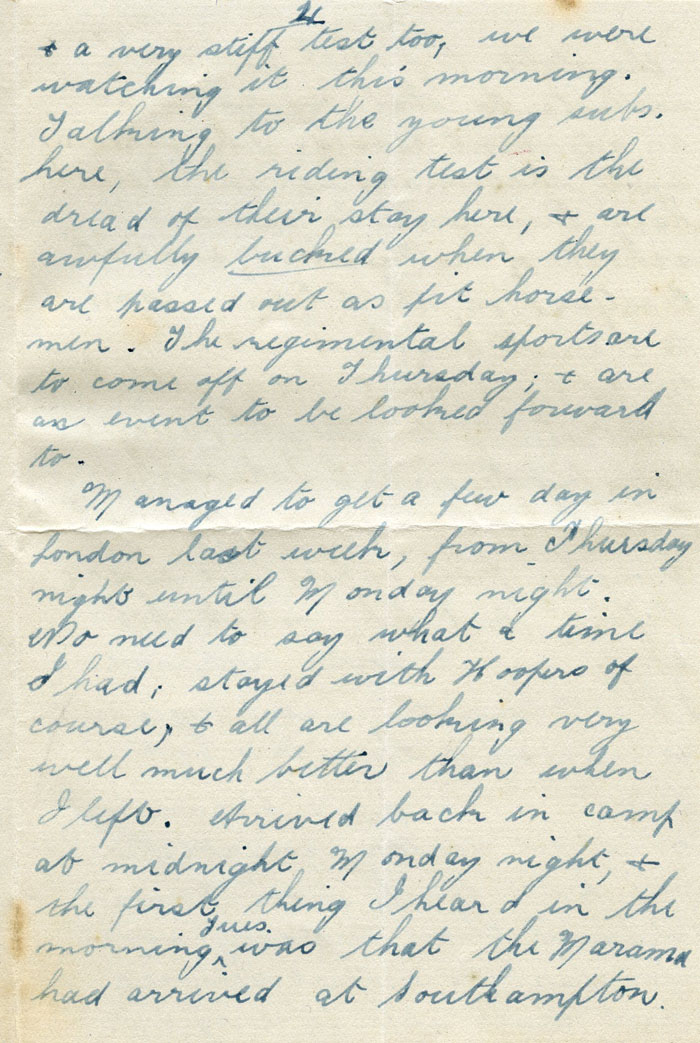 4
& a very stiff test too, we were
watching it this morning.
Talking to the young subs.
here, the riding test is the
dread of their stay here, & are
awfully bucked when they
are passed out as fit horse-
men. The regimental sports are
to come off on Thursday; & are
an event to be looked forward
to.
Managed to get a few day in
London last week, from Thursday
night until Monday night.
No need to say what a time
I had; stayed with Hoopers of
course, & all are looking very
well much better than when
I left. Arrived back in camp
at midnight Monday night, &
the first thing I heard in the
morning, Tues. was that the Marama
had arrived at Southampton.